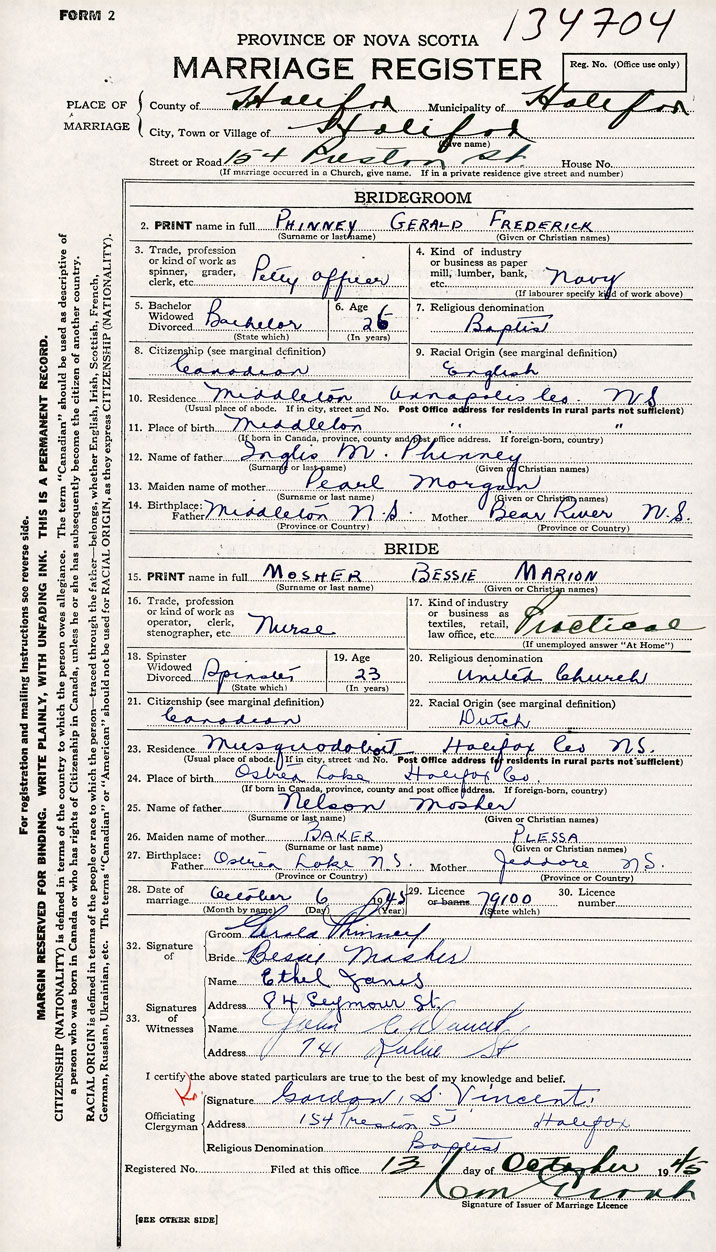 FORM 2
134704
PROVINCE OF NOVA SCOTIA
MARRIAGE REGISTER
Reg. No. (Office use only)
PLACE OF MARRIAGE
County of Halifax Municipality of Halifax
City, Town or Village of Halifax
(Give name)
Street or Road 154 Preston St. House No.
(If marriage occurred in a Church, give name. If in a private residence give street and number)
For registration and mailing instructions see reverse side.
MARGIN RESERVED FOR BINDING. WRITE PLAINLY, WITH UNFADING INK. THIS IS A PERMANENT RECORD.
CITIZENSHIP (NATIONALITY) is defined in terms of the country to which the person owes allegiance. The term "Canadian" should be used as descriptive of
a person who was born in Canada or who has rights of Citizenship in Canada, unless he or she has subsequently become the citizen of another country.
RACIAL ORIGIN is defined in terms of the people or race to which the person—traced through the father—belongs, whether English, Irish, Scottish, French,
German, Russian, Ukrainian, etc. The terms "Canadian" or "American" should not be used for RACIAL ORIGIN, as they express CITIZENSHIP (NATIONALITY).
BRIDEGROOM
2. PRINT name in full PHINNEY GERALD FREDERICK
(Surname or last name) (Given or Christian names)
3. Trade, profession or kind of work as spinner, grader, clerk, etc. Petty Officer
4. Kind of industry or business as paper mill, lumber, bank, etc. Navy
(If labourer specify kind of work above)
5. Bachelor Widowed Divorced Bachelor (State which)
6. Age 26 (In years)
7. Religious denomination Baptist
8. Citizenship (see marginal definition) Canadian
9. Racial Origin (see marginal definition) English
10. Residence Middleton Annapolis Co. N.S
(Usual place of abode. If in city, street and No. Post Office address for residents in rural parts not sufficient)
11. Place of birth Middleton " "
(If born in Canada, province, county and post office address. If foreign-born, country)
12. Name of father Inglis M. Phinney
(Surname or last name) (Given or Christian names)
13. Maiden name of mother Pearl Morgan
(Surname or last name) (Given or Christian names)
14. Birthplace: Father Middleton N.S. Mother Bear River N.S.
(Province or Country) (Province or Country)
BRIDE
15. PRINT name in full MOSHER BESSIE MARION
(Surname or last name) (Given or Christian names)
16. Trade, profession or kind of work as operator, clerk, stenographer, etc. Nurse
17. Kind of industry or business as textiles, retail, law office, etc. Practical
(If unemployed answer "At Home")
18. Spinster Widowed Divorced Spinster (State which)
19. Age 23 (In years)
20. Religious denomination United Church
21. Citizenship (see marginal definition) Canadian
22. Racial Origin (see marginal definition) Dutch
23. Residence Musquodoboit Halifax Co N.S.
(Usual place of abode. If in city, street and No. Post Office address for residents in rural parts not sufficient)
24. Place of birth Ostrea Lake Halifax Co.
(If born in Canada, province, county and post office address. If foreign-born, country)
25. Name of father Nelson Mosher
(Surname or last name) (Given or Christian names)
26. Maiden name of mother BAKER PLESSA
(Surname or last name) (Given or Christian names)
27. Birthplace: Father Ostrea Lake N.S. Mother Jeddore N.S.
(Province or Country) (Province or Country)
28. Date of marriage October 6 1945
(Month by name) (Day) (Year)
29. Licence or banns 79100 (State which)
30. Licence number
32. Signature of
Groom Gerald Phinney
Bride Bessie Mosher
33. Signatures of Witnesses
Name Ethel Janes
Address 84 Seymour St.
Name John
Address 741 St
I certify the above stated particulars are true to the best of my knowledge and belief.
Officiating Clergyman
Signature Gordon S. Vincent
Address 154 Preston St Halifax
Religious Denomination Baptist
Registered No. Filed at this office 13 day of October 1945
Signature of Issuer of Marriage Licence
[SEE OTHER SIDE]